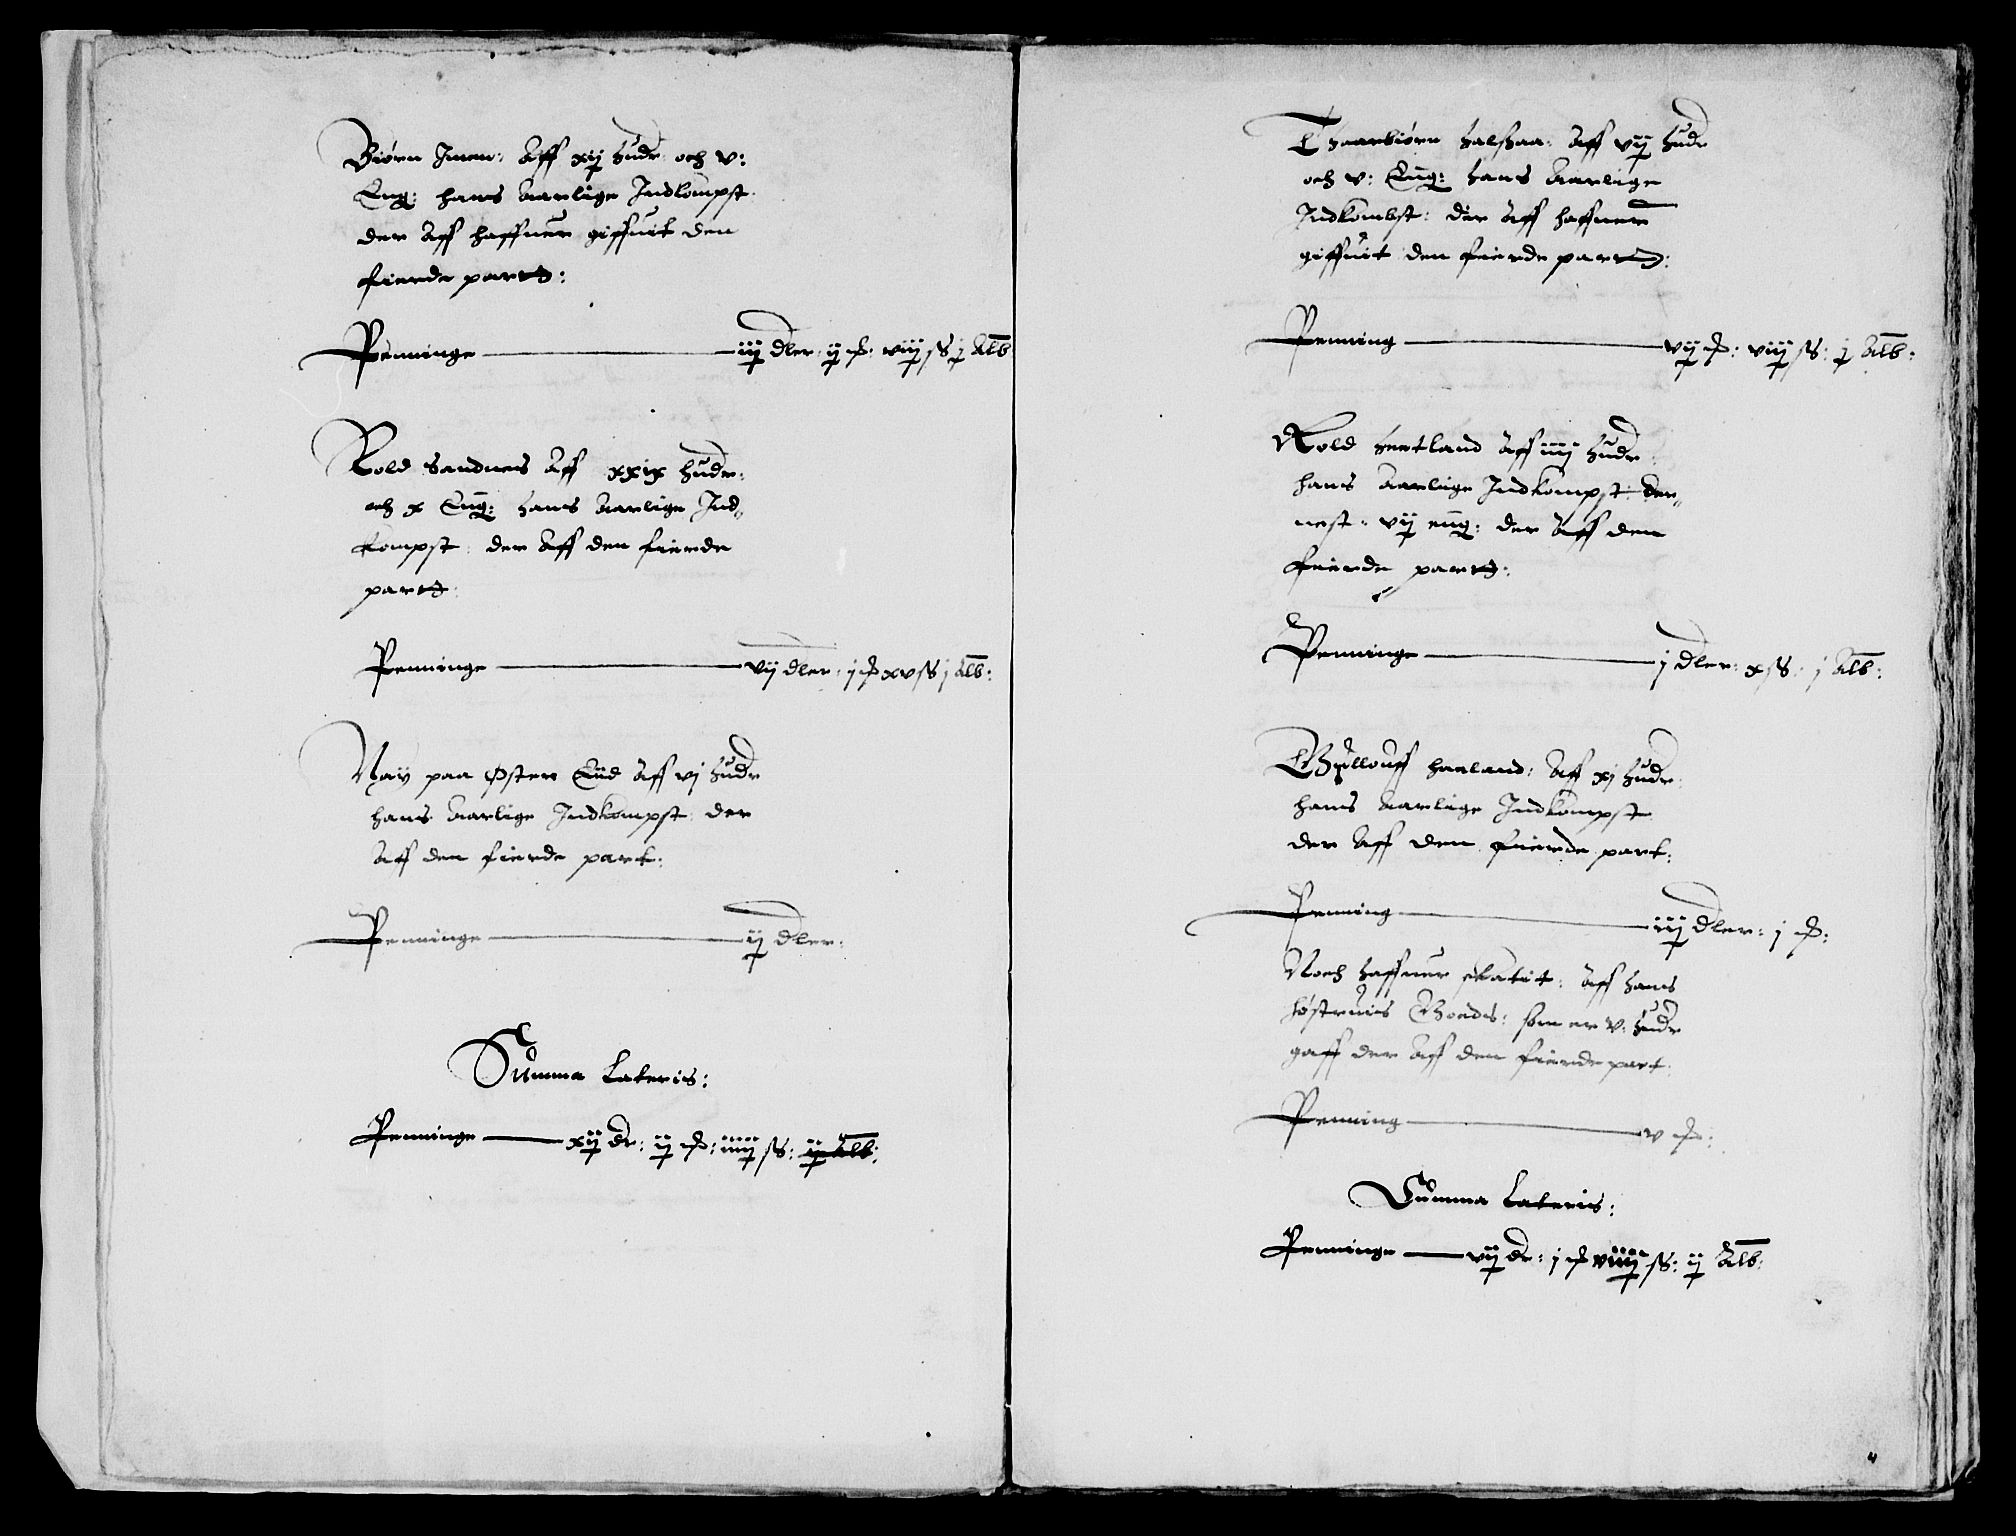 Biørn Imen: Aff xij hudr och v:
Eng: hans Aarlige Indkompst
der Aff haffuer giffuit den
fierde partt:
Penninge iij dler: ij ꝑ: viij ss j Alb
Rold Sandnes Aff xxix hudr:
och x Eng: hans Aarlige Ind-
kompst: der Aff den fierde
partt:
Penninge vij dler: j ꝑ xv ss j Alb:
Nay paa Øster Eiid Aff vj hudr
hans Aarlige Indkompst: der
Aff den fierde part:
Penninge ij dler:
Summa Lateris:
Penninge xij dr: ij ꝑ: iiij ss:
Thaarbiørn Aff vij hudr
och v: Eng: hans Aarlige
Indkombst: der Aff haffuer
giffuit den fierde partt:
Penning vij ꝑ: viij ss: j Alb:
Rold Hertland Aff iiij hudr
hans Aarlige Indkompst: der-
nest: vij eng: der Aff den
fierde partt:
Penninge j dler: x ss: j Alb:
Gullouff haaland: Aff xj hudr
hans Aarlige Indkompst
der Aff den fierde part:
Penning iij dler: j ꝑ:
Noch haffuer skatit: Aff hans
høstruis Goeds: som er v: hudr
gaff der Aff den fierde part:
Penning v ꝑ:
Summa Lateris:
Penninge vij dr: j ꝑ ss: ij Alb: